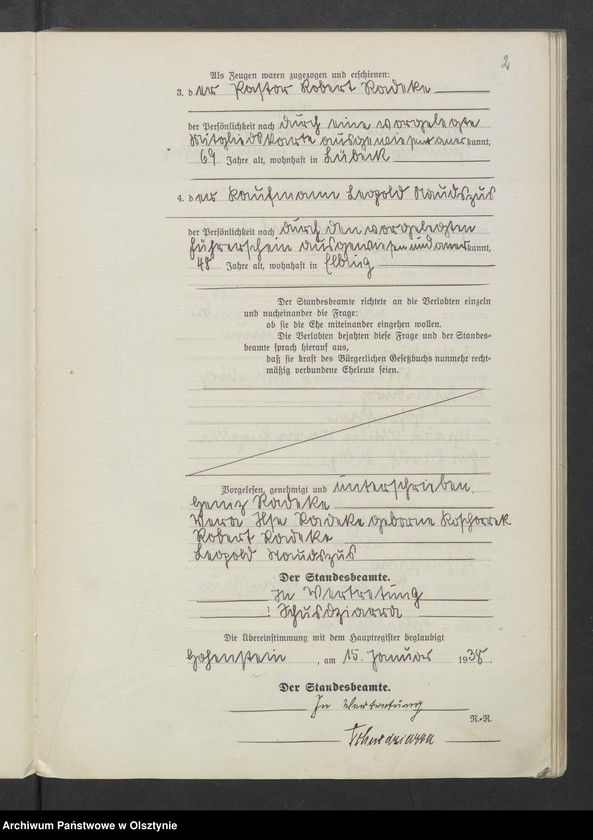 2
Als Zeugen waren zugezogen und erschienen:
3. der Pastor Robert Radeke
der Persönlichkeit nach durch eine vorgelegte
Mitgliedskarte ausgewiesen und anerkannt,
69 Jahre alt, wohnhaft in Lübeck
4. der Kaufmann Leopold Naudszus
der Persönlichkeit nach durch den vorgelegten
Führerschein ausgewiesen und anerkannt,
48 Jahre alt, wohnhaft in Elbing
Der Standesbeamte richtete an die Verlobten einzeln
und nacheinander die Frage:
ob sie die Ehe miteinander eingehen wollen.
Die Verlobten bejahten diese Frage und der Standes-
beamte sprach hierauf aus,
daß sie kraft des Bürgerlichen Gesetzbuchs nunmehr recht-
mäßig verbundene Eheleute seien.
Vorgelesen, genehmigt und unterschrieben.
Heinz Radeke
Vera Ilse Radeke geborne Koschorrek
Robert Radeke
Leopold Naudszus
Der Standesbeamte.
In Vertretung
Schusdziarra
Die Übereinstimmung mit dem Hauptregister beglaubigt
Hohenstein, am 15. Januar 1938.
Der Standesbeamte.
In Vertretung
N.-R.
Schusdziarra
Archiwum Państwowe w Olsztynie